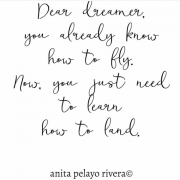 Dear dreamer,
you already know
how to fly.
Now, you just need
to learn
how to land.
anita pelayo rivera©